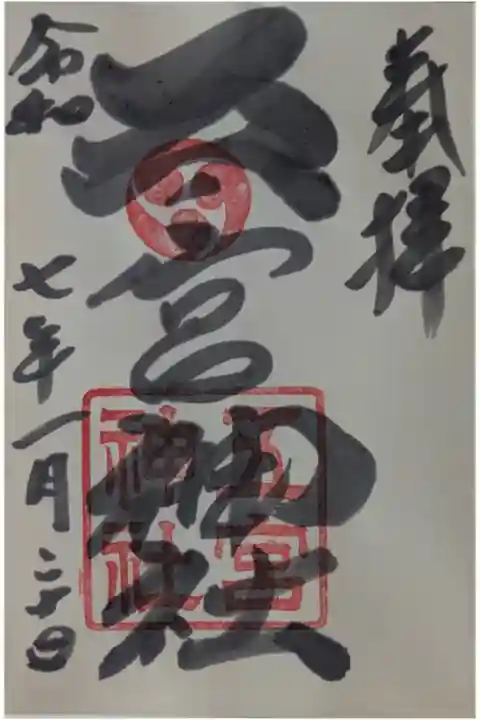 奉拝
宮神社
令和七年一月二十日
宮
神社